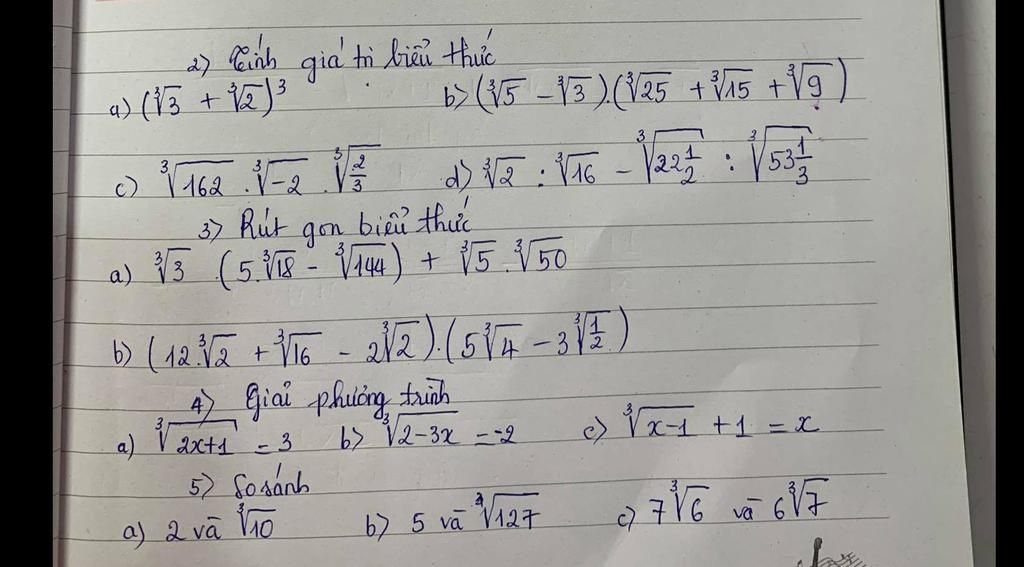 2) Tính giá trị biểu thức
a) (∛3 + ∛2)³ b) (∛5 - ∛3).(∛25 + ∛15 + ∛9)
c) ∛162 . ∛-2 . ∛(2/3) d) ∛2 : ∛16 - ∛(22 1/2) : ∛(53 1/3)
3) Rút gọn biểu thức
a) ∛3 . (5.∛18 - ∛144) + ∛5 . ∛50
b) (12.∛2 + ∛16 - 2∛2).(5∛4 - 3∛(1/2))
4) Giải phương trình
a) ∛(2x+1) = 3 b) ∛(2-3x) = -2 c) ∛(x-1) + 1 = x
5) So sánh
a) 2 và ∛10 b) 5 và ∛127 c) 7∛6 và 6∛7